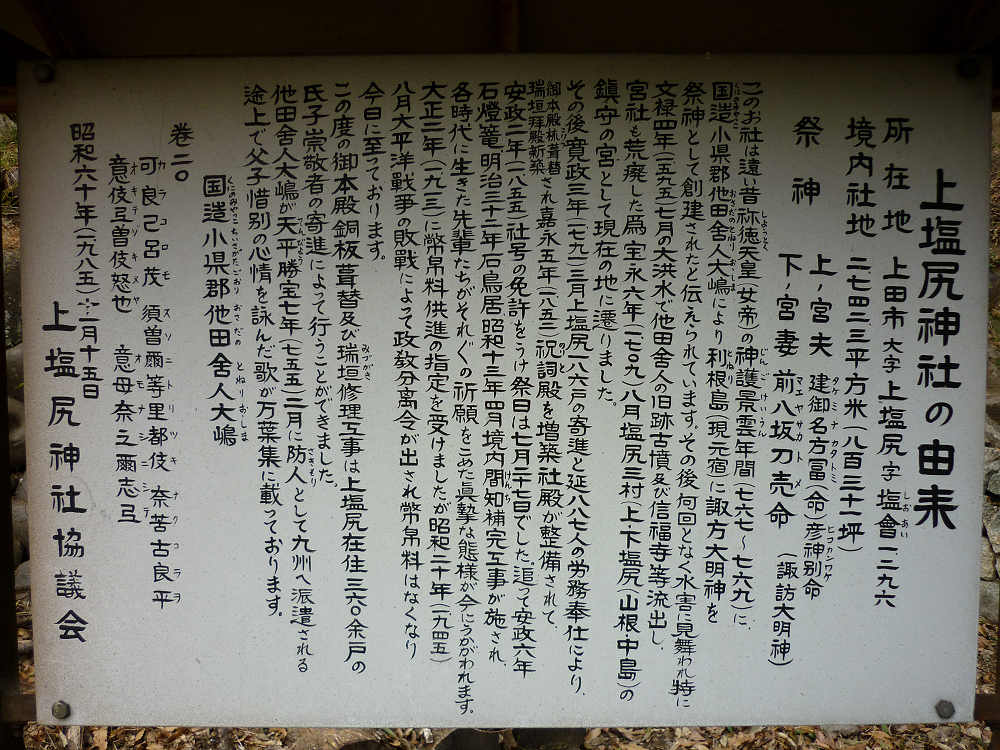 上塩尻神社の由来
所在地 上田市大字上塩尻字塩會一二九六
境内社地 二七四二、三平方米(八百三十一坪)
祭神 上ノ宮夫 建御名方冨(命)彦神别命
下ノ宮妻 前八坂刀売命 (諏訪大明神)
このお社は遠い昔祢徳天皇(女帝)の神護景雲年間(七六七~七六九)に、
国造小県郡他田舎人大嶋により利根島(現元宿)に諏方大明神を
祭神として創建されたと伝えられています。その後何回となく水害に見舞われ特に
文禄四年(一五九五)七月の大洪水で他田舎人の旧跡古墳及び信福寺等流出し、
宮社も荒廃した為、宝永六年(一七〇九)八月塩尻三村(上下塩尻(山根・中島)の
鎮守の宮として現在の地に遷りました。
その後寛政三年(一七九一)三月上塩尻一八六戸の寄進と延八八七人の労務奉仕により、
御本殿杮葺替瑞垣拝殿新築され嘉永五年(一八五二)祝詞殿を増築社殿が整備されて、
安政二年(一八五五)社号の免許をうけ祭日は七月二十七日でした。追って安政六年
石燈篭明治三十二年石鳥居昭和十三年四月境内間知補完工事が施され、
各時代に生きた先輩たちがそれぞれの祈願をこめた眞摯な態様が今にうかがわれます。
大正二年(一九一三)に幣帛料供進の指定を受けましたが昭和二十年(一九四五)
八月大平洋戦爭の敗戦によって政教分离令が出され幣帛料はなくなり
今日に至っております。
この度の御本殿銅板葺替及び瑞垣修理工事は上塩尻在住三六〇余戸の
氏子崇敬者の寄進によって行うことができました。
他田舎人大嶋が天平勝宝七年(七五五)二月に防人として九州へ派遣される
途上で父子惜别の心情を詠んだ歌が万葉集に載っております。
国造小県郡他田舎人大嶋
巻二〇
可良己呂茂 須曽爾等里都伎 奈苦古良乎
意伎弖曽伎怒也 意母奈之爾志弖
昭和六十年(一九八五)十二月十五日
上塩尻神社協議会